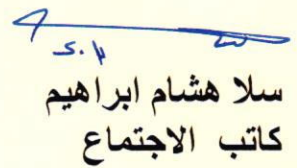 سلا هشام ابراهيم
كاتب الاجتماع